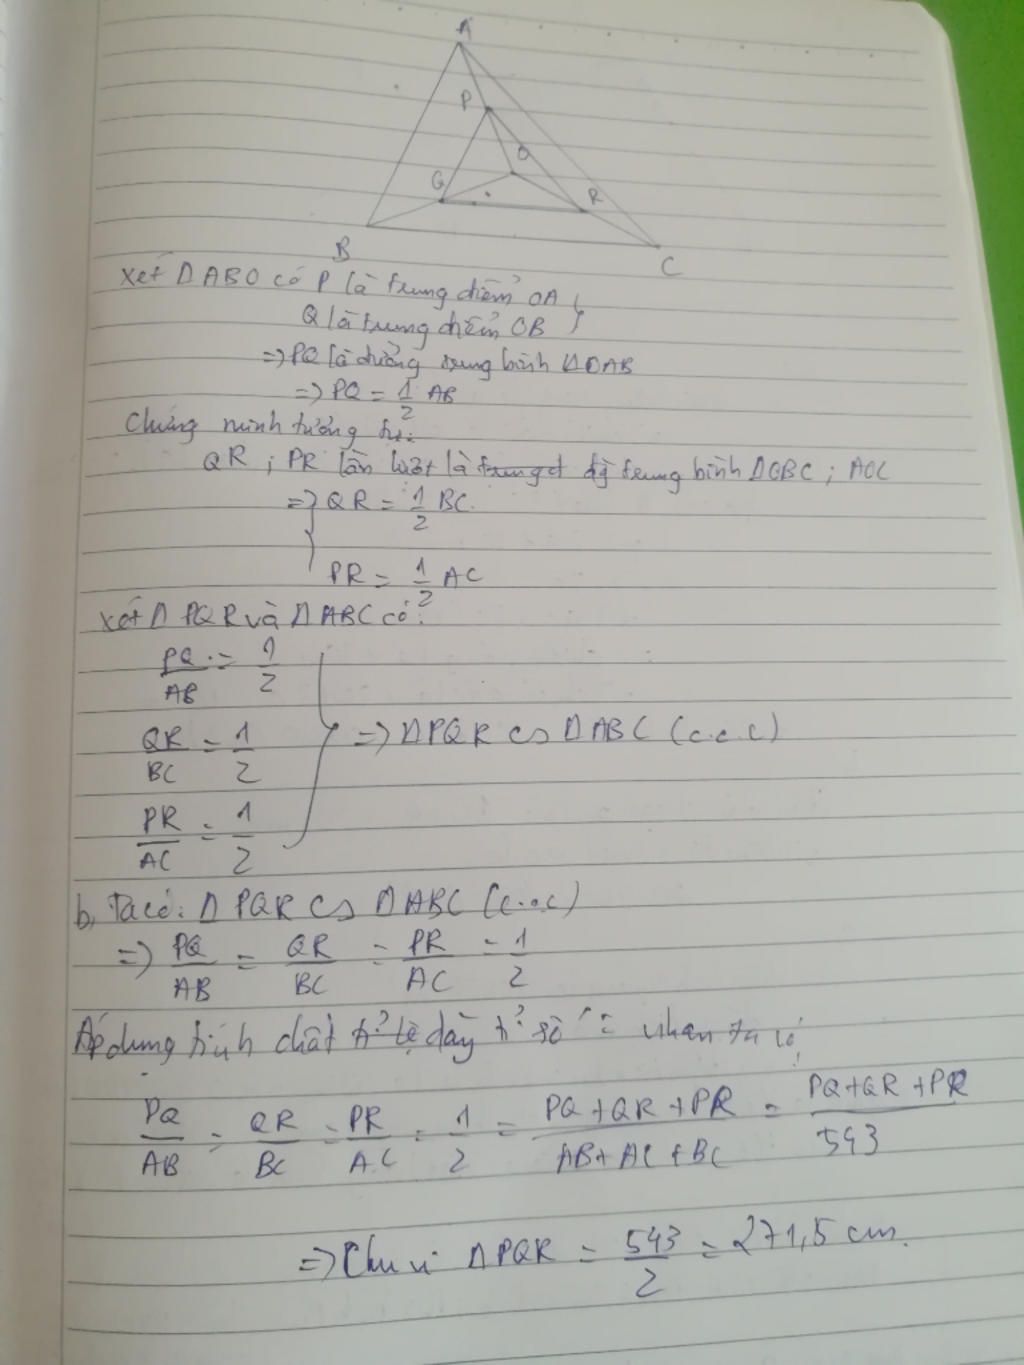 A
P
O
Q
R
B
C
Xét Δ ABO có P là trung điểm OA
Q là trung điểm OB
=> PQ là đường trung bình ΔOAB
=> PQ = 1/2 AB
Chứng minh tương tự:
QR ; PR lần lượt là trungđ đg trung bình ΔOBC ; AOC
=> QR = 1/2 BC.
PR = 1/2 AC
Xét Δ PQR và Δ ABC có:
PQ/AB = 1/2
QR/BC = 1/2
PR/AC = 1/2
=> ΔPQR ∽ ΔABC (c.c.c)
b, Ta có: Δ PQR ∽ ΔABC (c.c.c)
=> PQ/AB = QR/BC = PR/AC = 1/2
Áp dụng tính chất tỉ lệ dãy tỉ số = nhau ta có
PQ/AB = QR/BC = PR/AC = 1/2 = PQ+QR+PR/AB+AC+BC = PQ+QR+PR/543
=> Chu vi ΔPQR = 543/2 = 271,5 cm.